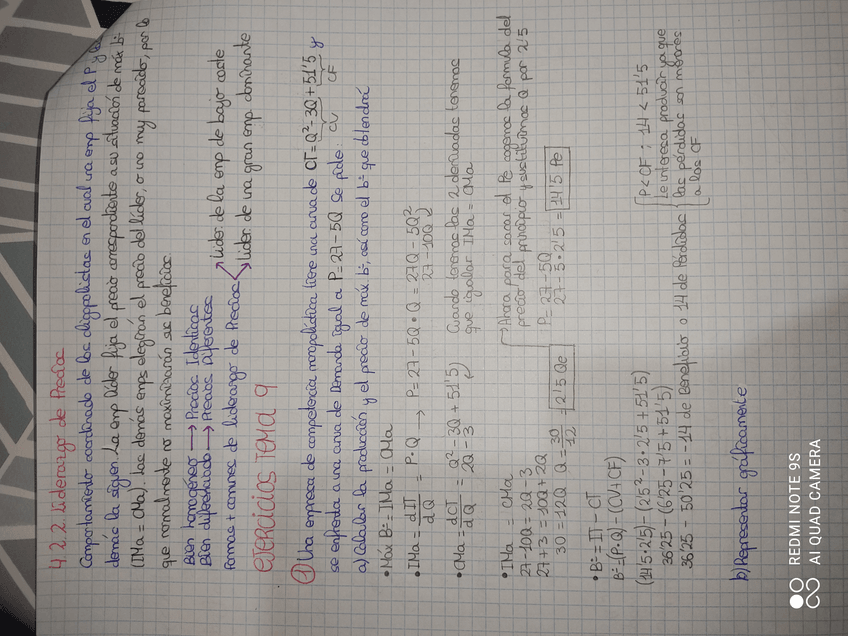 4.2.2 Liderazgo de Precios
Comportamiento coordinado de los oligopolistas en el cual una emp fija el P y las
demás la siguen. La emp líder fija el precio correspondiente a su situación de máx bº
(IMa = CMa). Las demás emps elegirán el precio del líder, o uno muy parecido, por lo
que normalmente no maximizarán sus beneficios.
Bien homogéneo → Precios Identicos
Bien diferenciado → Precios Diferentes
Formas + comunes de liderazgo de Precios
Lider de la emp de bajo coste
Lider de una gran emp dominante
EJERCICIOS TEMA 9
① Una empresa de competencia monopolística tiene una curva de CT = Q² - 3Q + 51'5 y
CV CF
se enfrenta a una curva de Demanda igual a P = 27 - 5Q Se pide:
a) Calcular la producción y el precio de máx bº, así como el bº que obtendrá
• Máx Bº = IMa = CMa
• IMa = dIT/dQ = P·Q → P = 27 - 5Q · Q = 27Q - 5Q²
27 - 10Q
• CMa = dCT/dQ = Q² - 3Q + 51'5
2Q - 3
Cuando tenemos las 2 derivadas tenemos
que igualar IMa = CMa
• IMa = CMa
27 - 10Q = 2Q - 3
27 + 3 = 10Q + 2Q
30 = 12Q Q = 30/12 = 2'5 Qe
Ahora para sacar el Pe cogemos la formula del
precio del principio y sustituimos Q por 2'5
P = 27 - 5Q
27 - 5 · 2'5 = 14'5 Pe
• Bº = IT - CT
Bº = (P·Q) - (CV + CF)
(14'5 · 2'5) - (2'5² - 3 · 2'5 + 51'5)
36'25 - (6'25 - 7'5 + 51'5)
36'25 - 50'25 = -14 de Beneficio o 14 de Pérdidas
P < CF ; 14 < 51'5
Le interesa producir ya que
las pérdidas son menores
a los CF
b) Representar gráficamente
REDMI NOTE 9S
AI QUAD CAMERA